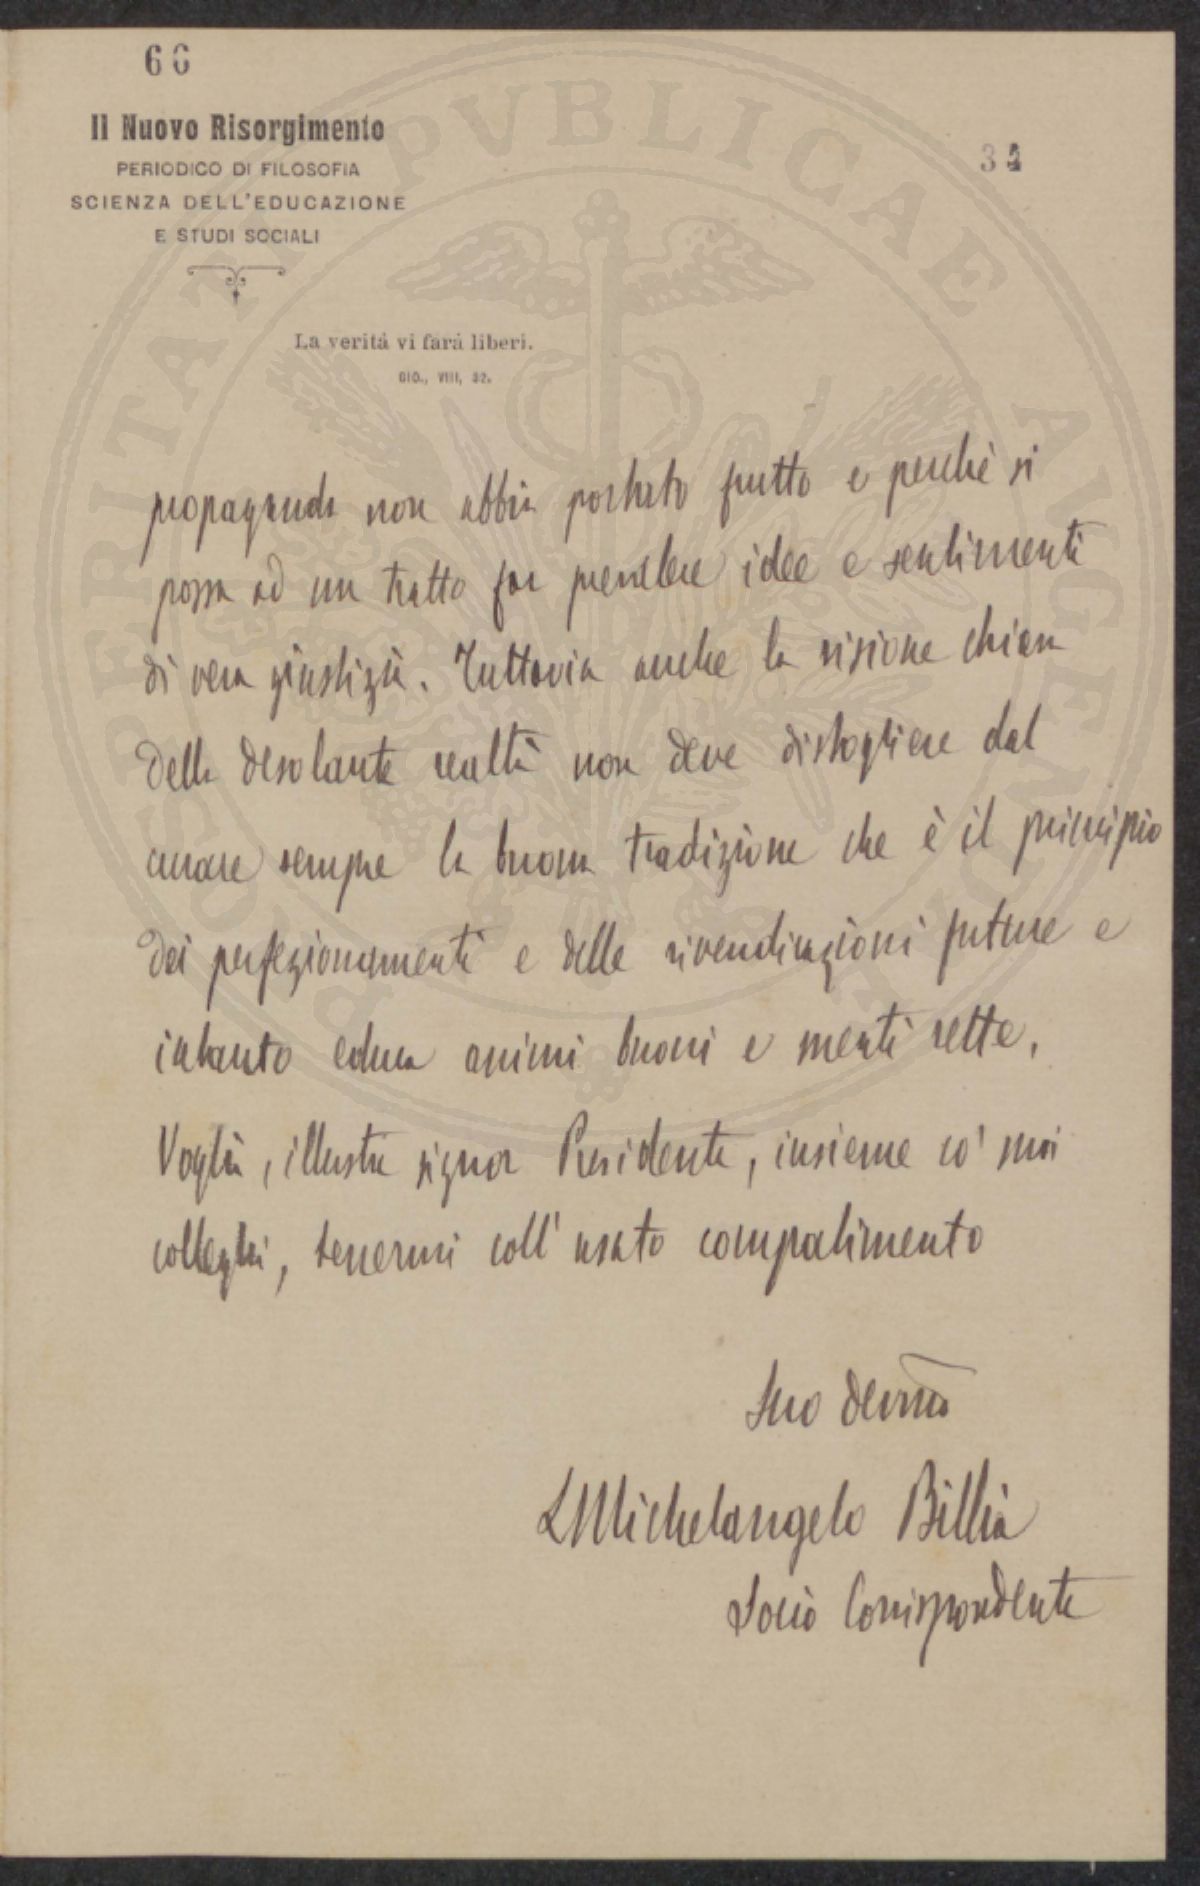 66
Il Nuovo Risorgimento
PERIODICO DI FILOSOFIA
SCIENZA DELL'EDUCAZIONE
E STUDI SOCIALI
34
La verità vi farà liberi.
GIO., VIII, 32.
PROSPERITATI PVBLICAE AVGENDAE
propaganda non abbia portato frutto e perchè si
possa ad un tratto far prendere idee e sentimenti
di vera giustizia. Tuttavia anche la visione chiara
della desolante realtà non deve distogliere dal
curare sempre la buona tradizione che è il principio
dei perfezionamenti e delle rivendicazioni future e
intanto educa animi buoni e menti rette.
Voglia, illustre signor Presidente, insieme co' suoi
colleghi, tenermi coll' usato compatimento
Suo devmo
LMichelangelo Billia
Socio Corrispondente